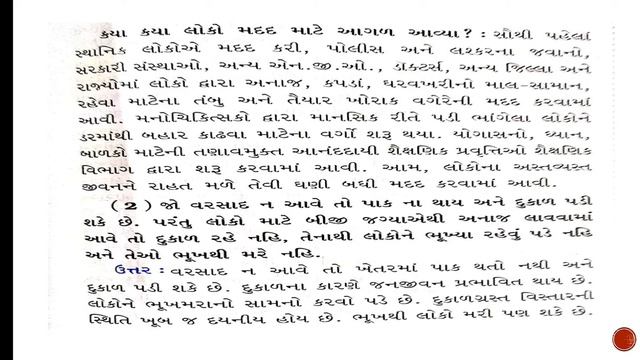 કયા કયા લોકો મદદ માટે આગળ આવ્યા? : સૌથી પહેલાં
સ્થાનિક લોકોએ મદદ કરી, પોલીસ અને લશ્કરના જવાનો,
સરકારી સંસ્થાઓ, અન્ય એન.જી.ઓ., ડાક્ટર્સ, અન્ય જિલ્લા અને
રાજ્યોમાં લોકો દ્વારા અનાજ, કપડાં, ઘરવખરીનો માલ-સામાન,
રહેવા માટેના તંબુ અને તૈયાર ખોરાક વગેરેની મદદ કરવામાં
આવી. મનોચિકિત્સકો દ્વારા માનસિક રીતે પડી ભાંગેલા લોકોને
ડરમાંથી બહાર કાઢવા માટેના વર્ગો શરૂ થયા. યોગાસનો, ધ્યાન,
બાળકો માટેની તણાવમુક્ત આનંદદાયી શૈક્ષણિક પ્રવૃત્તિઓ શૈક્ષણિક
વિભાગ દ્વારા શરૂ કરવામાં આવી. આમ, લોકોના અસ્તવ્યસ્ત
જીવનને રાહત મળે તેવી ઘણી બધી મદદ કરવામાં આવી.
(2) જો વરસાદ ન આવે તો પાક ના થાય અને દુકાળ પડી
શકે છે. પરંતુ લોકો માટે બીજી જગ્યાએથી અનાજ લાવવામાં
આવે તો દુકાળ રહે નહિ, તેનાથી લોકોને ભૂખ્યા રહેવું પડે નહિ
અને તેઓ ભૂખથી મરે નહિ.
ઉત્તર : વરસાદ ન આવે તો ખેતરમાં પાક થતો નથી અને
દુકાળ પડી શકે છે. દુકાળના કારણે જનજીવન પ્રભાવિત થાય છે.
લોકોને ભૂખમરાનો સામનો કરવો પડે છે. દુકાળગ્રસ્ત વિસ્તારની
સ્થિતિ ખૂબ જ દયનીય હોય છે. ભૂખથી લોકો મરી પણ શકે છે.